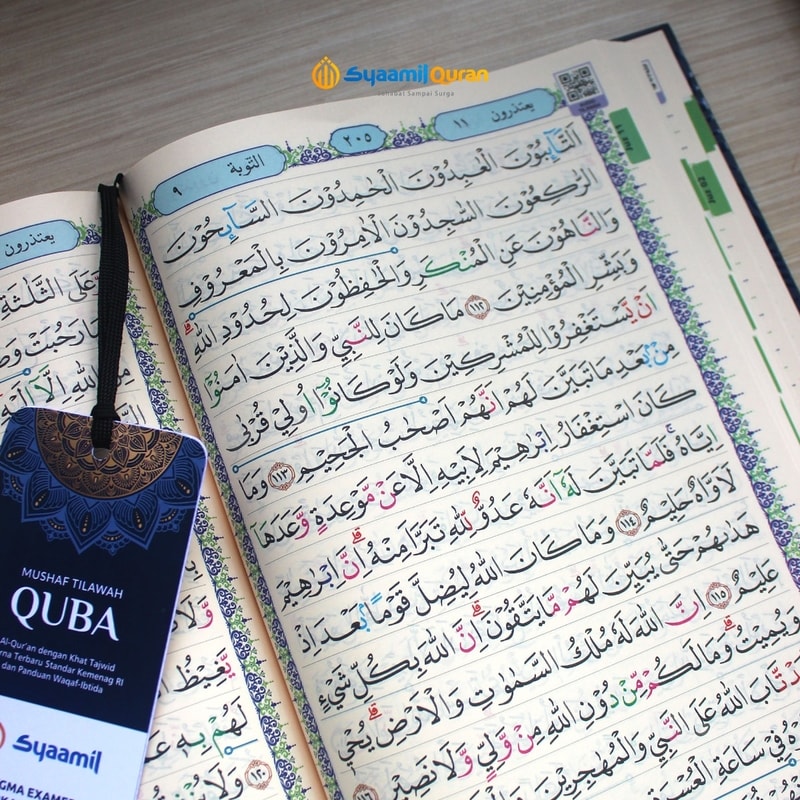 SyaamilQuran
Sahabat Sampai Surga
يعتذرون ١١
٢٠٥
التّوبة ٩
Juz 11
Juz 02
اَلتَّاۤىِٕبُوْنَ الْعٰبِدُوْنَ الْحٰمِدُوْنَ السَّاۤىِٕحُوْنَ
الرّٰكِعُوْنَ السّٰجِدُوْنَ الْاٰمِرُوْنَ بِالْمَعْرُوْفِ
وَالنَّاهُوْنَ عَنِ الْمُنْكَرِ وَالْحٰفِظُوْنَ لِحُدُوْدِ اللّٰهِ ۗ
وَبَشِّرِ الْمُؤْمِنِيْنَ ١١٢ مَا كَانَ لِلنَّبِيِّ وَالَّذِيْنَ اٰمَنُوْٓا
اَنْ يَّسْتَغْفِرُوْا لِلْمُشْرِكِيْنَ وَلَوْ كَانُوْٓا اُولِيْ قُرْبٰى
مِنْۢ بَعْدِ مَا تَبَيَّنَ لَهُمْ اَنَّهُمْ اَصْحٰبُ الْجَحِيْمِ ١١٣ وَمَا
كَانَ اسْتِغْفَارُ اِبْرٰهِيْمَ لِاَبِيْهِ اِلَّا عَنْ مَّوْعِدَةٍ وَّعَدَهَآ
اِيَّاهُۚ فَلَمَّا تَبَيَّنَ لَهٗٓ اَنَّهٗ عَدُوٌّ لِّلّٰهِ تَبَرَّاَ مِنْهُۗ اِنَّ اِبْرٰهِيْمَ
لَاَوَّاهٌ حَلِيْمٌ ١١٤ وَمَا كَانَ اللّٰهُ لِيُضِلَّ قَوْمًاۢ بَعْدَ اِذْ
هَدٰىهُمْ حَتّٰى يُبَيِّنَ لَهُمْ مَّا يَتَّقُوْنَۗ اِنَّ اللّٰهَ بِكُلِّ شَيْءٍ
عَلِيْمٌ ١١٥ اِنَّ اللّٰهَ لَهٗ مُلْكُ السَّمٰوٰتِ وَالْاَرْضِۗ يُحْيٖ
وَيُمِيْتُۗ وَمَا لَكُمْ مِّنْ دُوْنِ اللّٰهِ مِنْ وَّلِيٍّ وَّلَا نَصِيْرٍ ١١٦
تَّابَ اللّٰهُ عَلَى النَّبِيِّ وَالْمُهٰجِرِيْنَ
فِيْ سَاعَةِ
يعتذرون
وَّعَلَى الثَّلٰثَةِ
رَحُبَتْ
مِنَ اللّٰهِ اِلَّآ
لَهُمْ بِهٖ
١٢٠ وَلَا
MUSHAF TILAWAH
QUBA
Al-Qur'an dengan Khat Tajwid
Terbaru Standar Kemenag RI
dan Panduan Waqaf-Ibtida
Syaamil